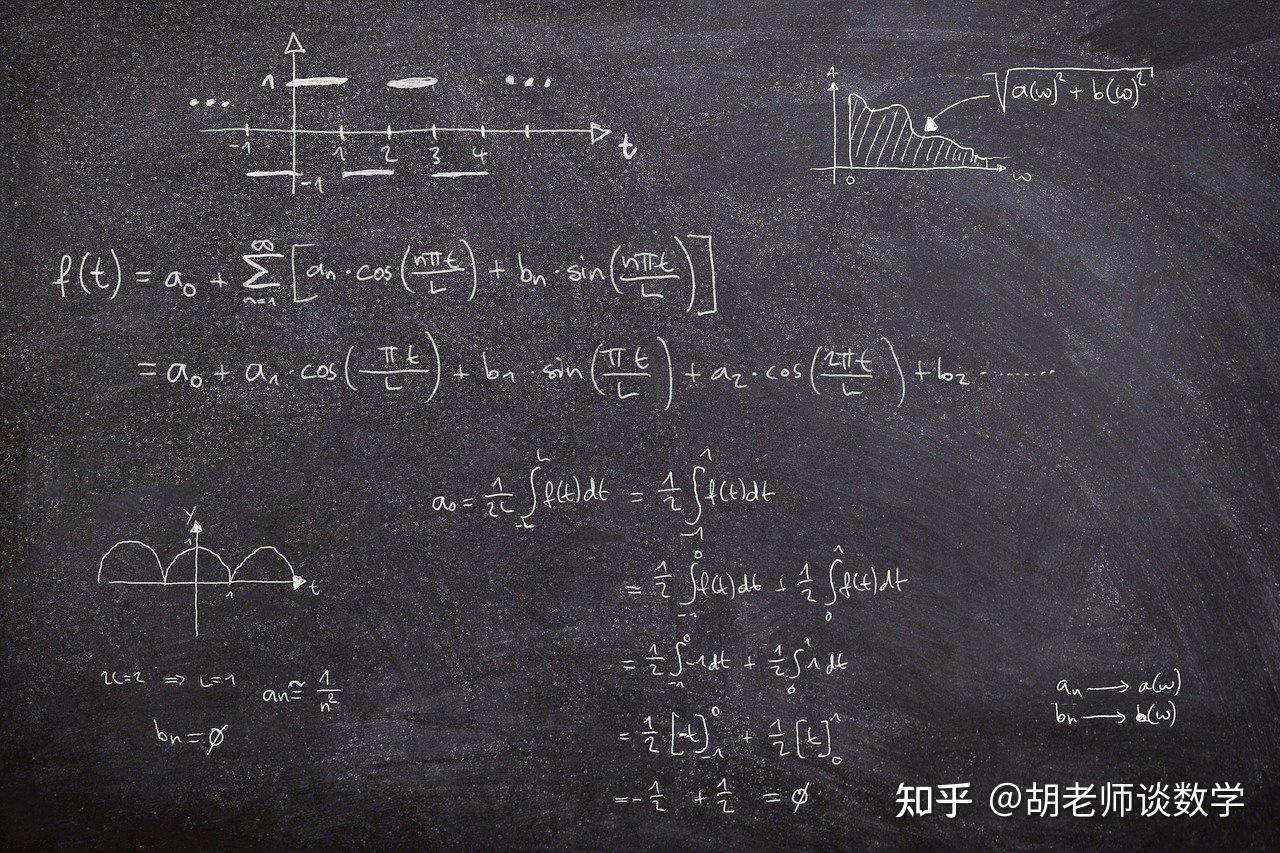 1 ...
...
-1 1 2 3 4 t
-1
A √(a(ω)² + b(ω)²)
0 ω
f(t) = a₀ + ∑ₙ₌₁^∞ [aₙ · cos(nπt/L) + bₙ · sin(nπt/L)]
= a₀ + a₁ · cos(πt/L) + b₁ · sin(πt/L) + a₂ · cos(2πt/L) + b₂ ········
a₀ = 1/2L ∫₋L^L f(t)dt = 1/2 ∫₋₁^1 f(t)dt
= 1/2 ∫₋₁^0 f(t)dt + 1/2 ∫₀^1 f(t)dt
= 1/2 ∫₋₁^0 -1dt + 1/2 ∫₀^1 1dt
= 1/2 [-t]₋₁^0 + 1/2 [t]₀^1
= -1/2 + 1/2 = ∅
y
1
1 t
2L=2 ⇒ L=1 aₙ ≅ 1/n²
bₙ = ∅
aₙ → a(ω)
bₙ → b(ω)
知乎 @胡老师谈数学